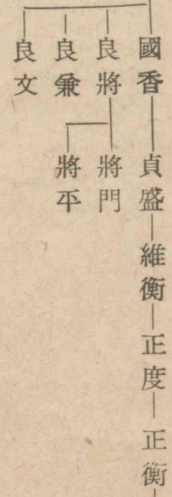 國香
貞盛
維衡
正度
正衡
良將
將門
將平
良兼
良文